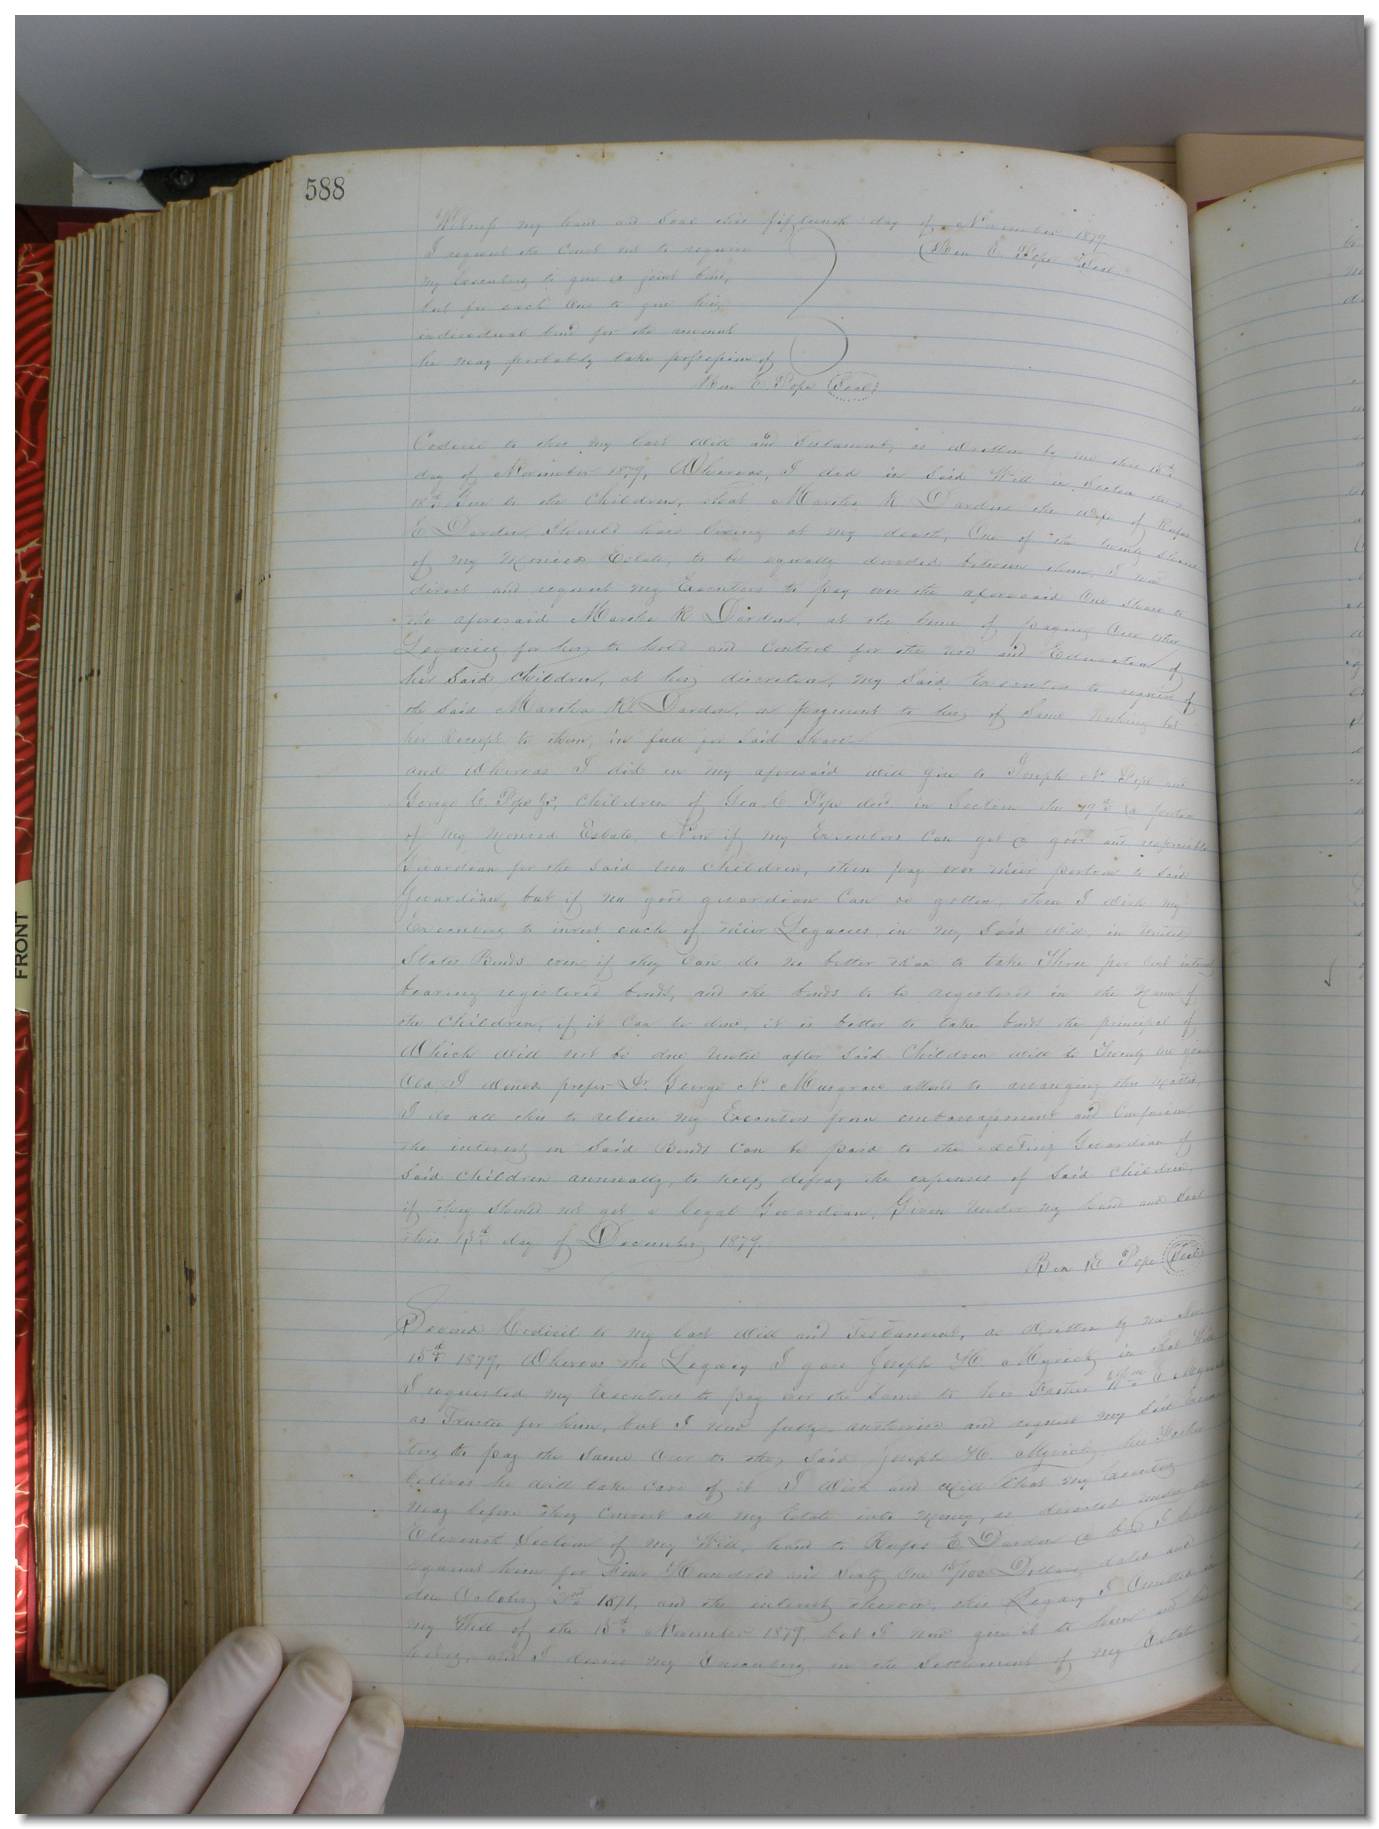 588
Witness my hand and seal this fifteenth day of November 1879
I request the Court not to require
Ben E Pope Seal
my Executors to give a joint bond,
but for each one to give his
individual bond for the amount
he may probably take possession of
Ben E Pope (Seal)
Codicil to this my last Will and Testament, as written by me this 15th
day of November 1879, Whereas, I did in said Will in Section the
18th Give to the Children, that Martha R Darden the wife of Rufus
E Darden should have living at my death, One of the twenty shares
of my monied Estate, to be equally divided between them, I now
direct and request my Executors to pay over the aforesaid One share to
the aforesaid Martha R Darden, at the time of paying Over other
Legacies for her to hold and Control for the use and Education of
her said Children, at her discretion, my said Executors to require of
the said Martha R. Darden, on payment to her of same nothing but
her Receipt to them, in full for said share
and Whereas I did in my aforesaid will give to Joseph N. Pope and
George C Pope Jr, Children of Geo. C Pope decd. in Section the 19th a portion
of my monied Estate, Now if my Executors Can get a good and responsible
Guardian for the said two children, then pay over their portion to said
Guardian, but if no good guardian Can be gotten, then I wish my
Executors to invest each of their Legacies, in my said Will, in United
States Bonds even if they Can do no better than to take Three per Cent interest
bearing registered bonds, and the bonds to be registered in the name of
the Children, if it Can be done, it is better to take bonds the principal of
Which will not be due until after said Children will be Twenty one years
Old, I would prefer Dr George N. Musgrave attend to arranging this matter,
I do all this to relieve my Executors from embarrassment and Confusion
the interest on said Bonds Can be paid to the acting Guardian of
said Children annually, to help defray the expenses of said Children,
if they should not get a legal Guardian, Given under my hand and Seal
this 15th day of December 1879.
Ben E Pope (Seal)
Second Codicil to my last Will and Testament, as written by me Nov
15th 1879, Whereas the Legacy I gave Joseph H Myrick in that Will
I requested my Executors to pay over the same to his Father Wm O Myrick
as Trustee for him, but I now fully authorize and request my said Execu-
tors to pay the same Over to the said Joseph H. Myrick his Father
believes he will take care of it I Wish and Will that my Executors
may before they Convert all my Estate into money, as directed under the
Eleventh Section of my Will, hand to Rufus E Darden a bond I hold
against him for Hundred and Sixty One Dollars dated and
due October 2nd 1871, and the interest thereon, this Legacy I Omitted in
my Will of the 15th November 1879, but I now give it to him and his
heirs, and I desire my Executors in the Settlement of my Estate